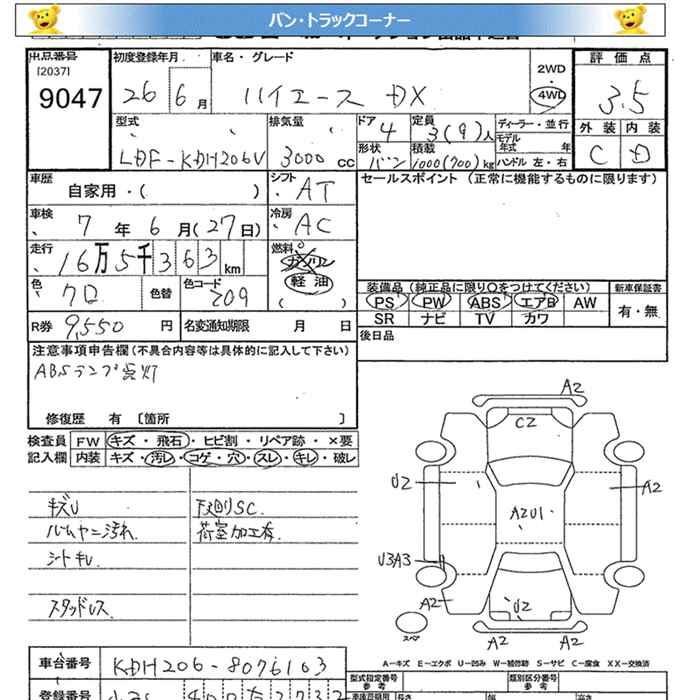 バン・トラックコーナー
出品番号 初度登録年月 車名・グレード 評価点
[2037]
9047 26 6月 ハイエース DX 2WD 4WD 3.5
外装 内装
C D
型式 排気量 ドア 定員 ディーラー・並行
LDF-KDH206V 3000cc 4 3(9)人 モデル年式 年
形状 積載 ハンドル 左・右
バン 1000(700)kg
車歴 シフト セールスポイント (正常に機能するものに限ります)
自家用・( ) AT
車検 冷房
7年6月(27日) AC
走行 燃料
16万5千363km ガソリン
軽油
( )
色 色替 色コード
クロ 209
装備品 (純正品に限り○をつけてください) 新車保証書
PS PW ABS エアB AW 有・無
SR ナビ TV カワ
R券 9,550円 名変通知期限 月 日
後日品
注意事項申告欄 (不具合内容等は具体的に記入して下さい)
ABSランプ点灯
修復歴 有 [箇所 ]
検査員 FW キズ・飛石・ヒビ割・リペア跡・×要
記入欄 内装 キズ・汚レ・コゲ・穴・スレ・キレ・破レ
キズU 下廻りSC.
ハムヤニ汚れ. 荷室加工有.
シートキレ.
スタッドレス.
A2
C2
U2 A2
A2U1
U3A3
A2
U2
スペア A2 A2
A-キズ E-エクボ U-凹み W-補修跡 S-サビ C-腐食 XX-交換済
車台番号 KDH206-8076163
型式指定番号 類別区分番号
参考 参考
登録番号
長さ 幅 高さ